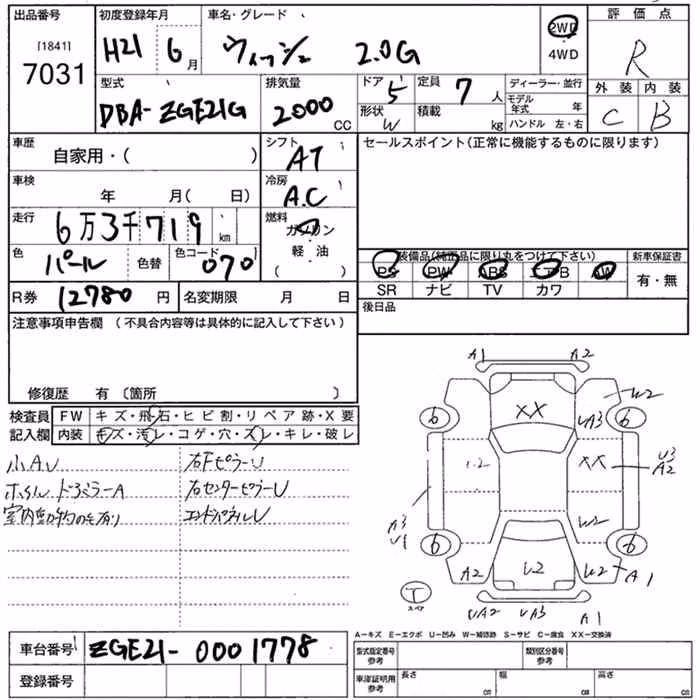 出品番号 初度登録年月 車名・グレード 評価点
[1841] H21 6月 ウィッシュ 2.0G 2WD R
7031 4WD
型式 排気量 ドア 5 定員 7人 ディーラー・並行 外装 内装
DBA-ZGE21G 2000CC 形状 W 積載 kg モデル年式 年 C B
ハンドル 左・右
車歴 自家用・( ) シフト AT セールスポイント(正常に機能するものに限ります)
車検 年 月( 日) 冷房 A.C
走行 6万3千719km 燃料 ガソリン・軽油 ( )
色 パール 色替 色コード 070 装備品(純正品に限り丸をつけて下さい) 新車保証書
PS PW ABS エアB AW 有・無
R券 12780円 名変期限 月 日 SR ナビ TV カワ
後日品
注意事項申告欄 (不具合内容等は具体的に記入して下さい)
修復歴 有 〔箇所 〕
検査員 FW キズ・飛石・ヒビ割・リペア跡・X要
記入欄 内装 キズ・汚レ・コゲ・穴・スレ・キレ・破レ
小AU 右FピラーU
ホイル、ドアミラーA 右センターピラーU
エンドパネルU
A1 A2
XX W2
6 UA3 6
U2 XX U3
A2
A3
U1 W2
6 6
A2 U2 W2 A1
T
スペア
UA2 UA3 A1
A-キズ E-エクボ U-凹み W-補修跡 S-サビ C-腐食 XX-交換済
車台番号 ZGE21-0001778 型式指定番号 参考 類別区分番号 参考
登録番号 車庫証明用 参考 長さ cm 幅 cm 高さ cm